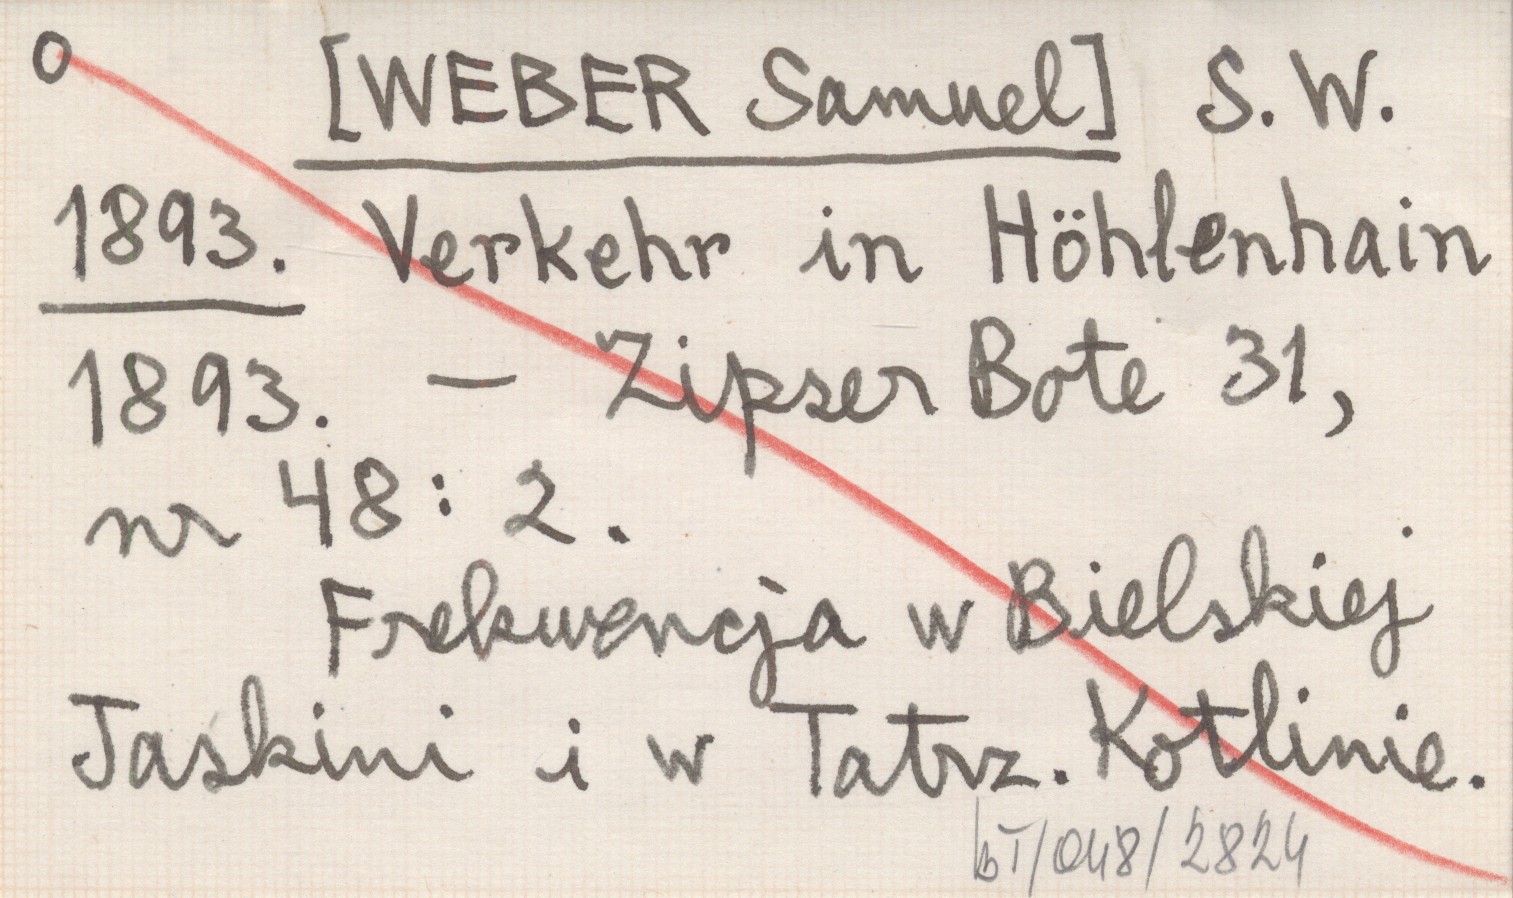 [WEBER Samuel] S. W.
1893. Verkehr in Höhlenhain
1893. — Zipser Bote 31,
nr 48: 2.
Frekwencja w Bielskiej
Jaskini i w Tatrz. Kotlinie.
bT/048/2824